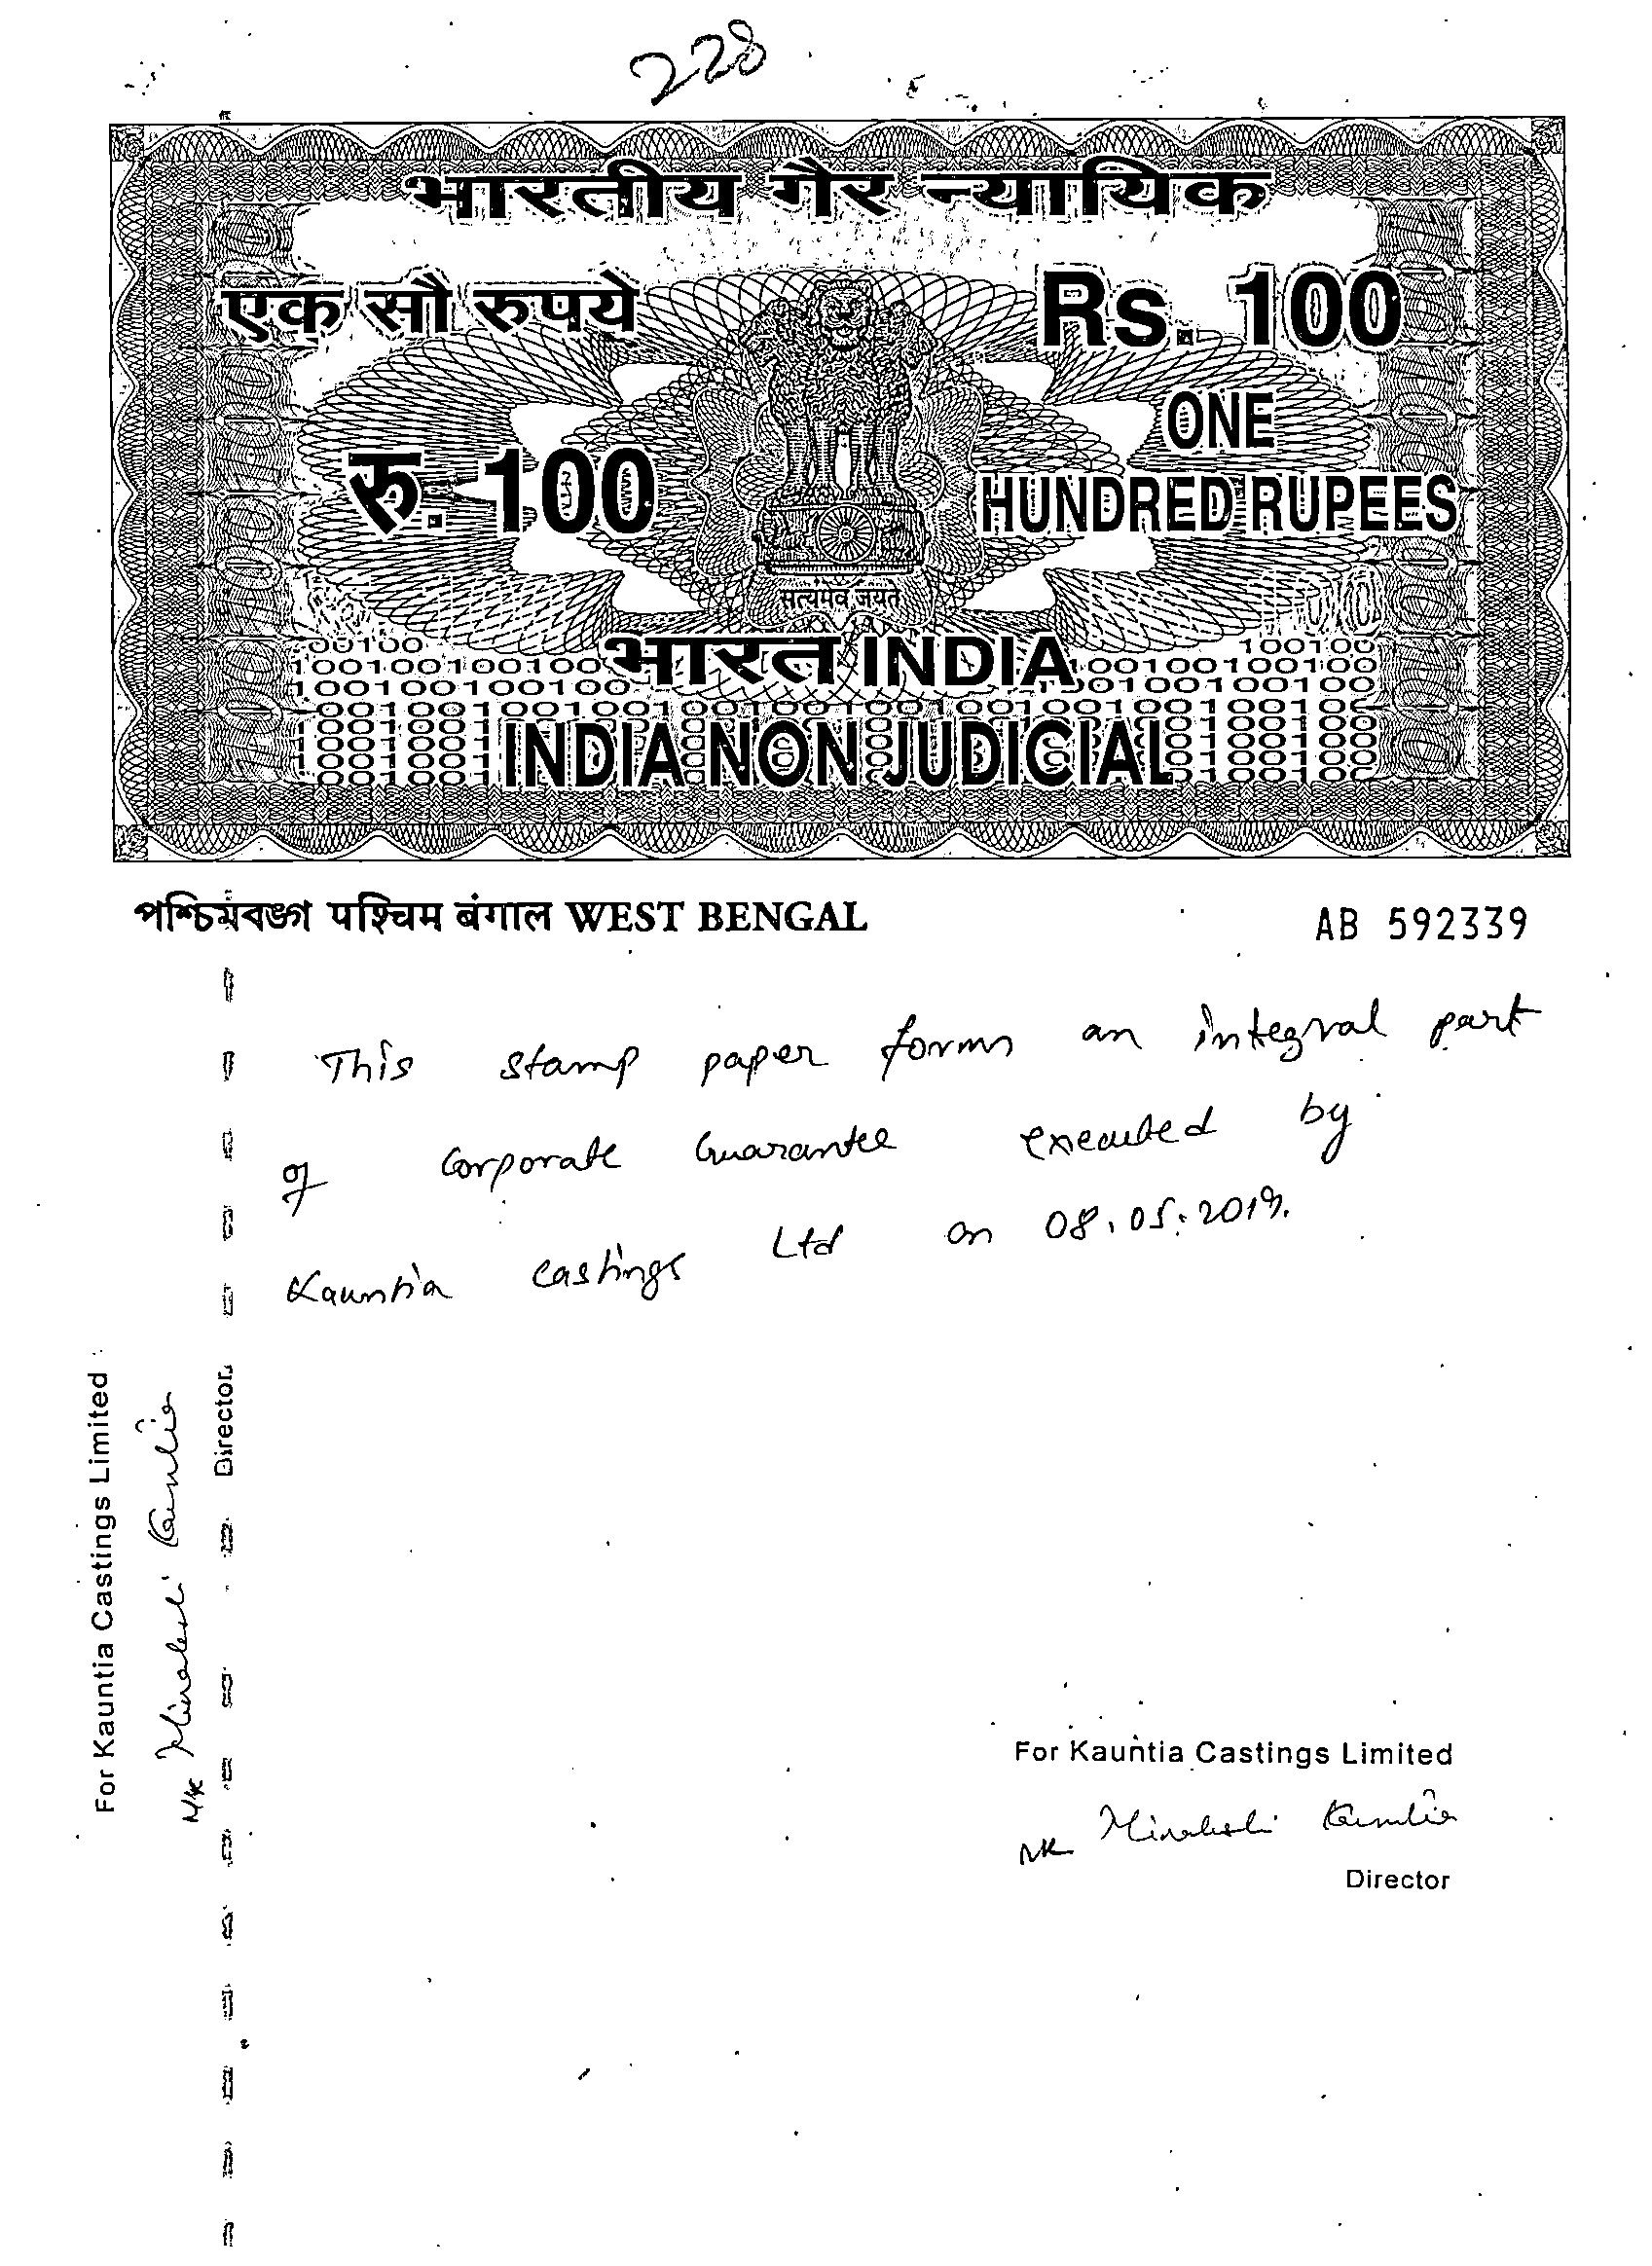 228
भारतीय गैर न्यायिक
एक सौ रुपये
Rs. 100
रु. 100
ONE
HUNDRED RUPEES
सत्यमेव जयते
भारत INDIA
INDIA NON JUDICIAL
পশ্চিমবঙ্গ पश्चिम बंगाल WEST BENGAL
AB 592339
This stamp paper forms an integral part
of Corporate Guarantee executed by
Kauntia Castings Ltd on 08.05.2019.
For Kauntia Castings Limited
Kauntia
Director
For Kauntia Castings Limited
Kauntia
Director